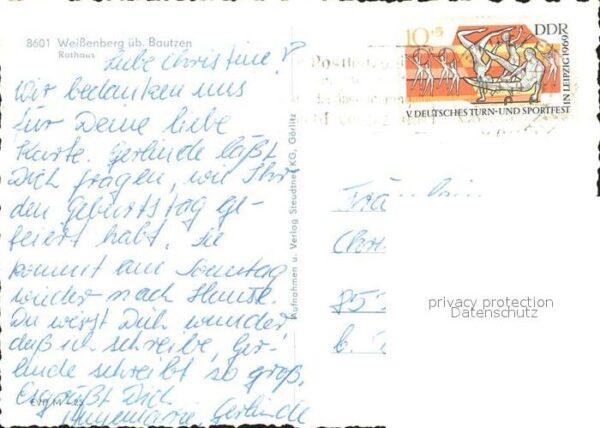 8601 Weißenberg üb. Bautzen
Rathaus
Liebe Christine!
Wir bedanken uns
für Deine liebe
Karte. Gerlinde läßt
Dich fragen, wie Ihr
den Geburtstag ge-
feiert habt, sie
kommt am Sonntag
wieder nach Hause.
Du wirst Dich wundern
daß ich schreibe, Ger-
linde schreibt so groß.
Es grüßt Dich
Annemarie, Gerlinde
Aufnahmen u. Verlag Steudtner KG, Görlitz
10+5
DDR
V. DEUTSCHES TURN- UND SPORTFEST
IN LEIPZIG 1969
Fräulein
Chr
85
b.
privacy protection
Datenschutz